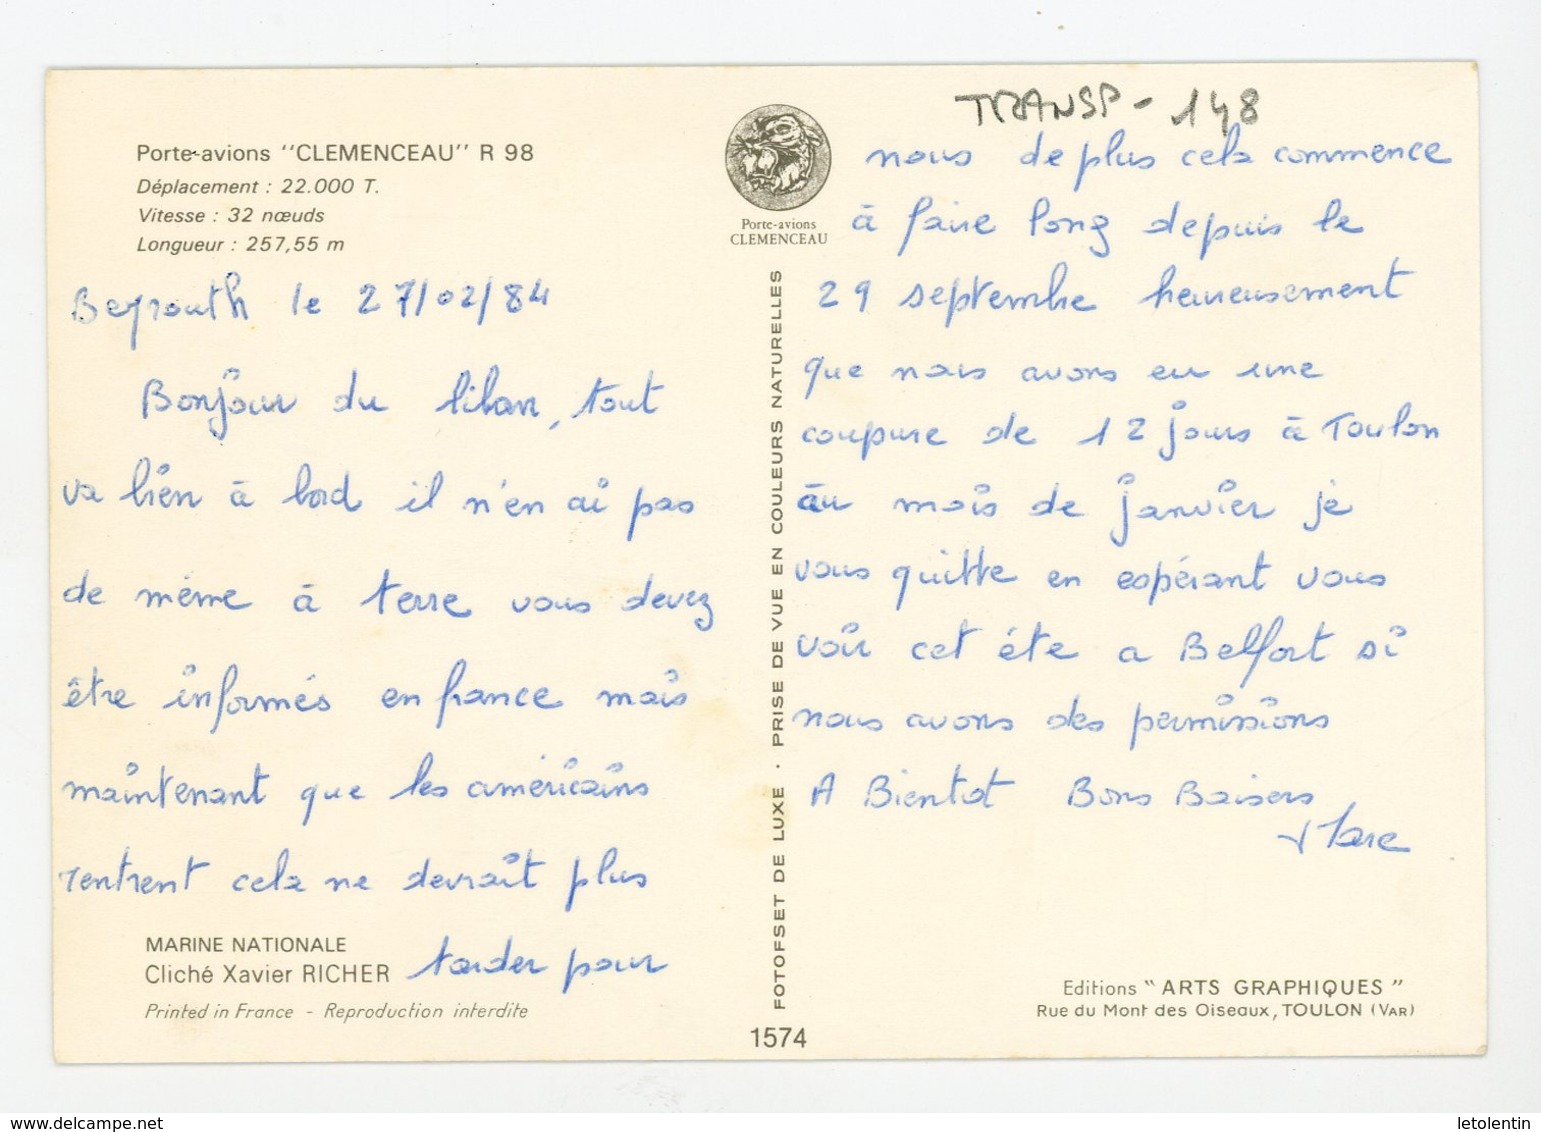 TRANSP - 148
Porte-avions "CLEMENCEAU" R 98
Déplacement : 22.000 T.
Vitesse : 32 nœuds
Longueur : 257,55 m
Beyrouth le 27/02/84
Bonjour du liban, tout
va bien à bord il n'en ai pas
de même à terre vous devez
être informés en france mais
maintenant que les américains
rentrent cela ne devrait plus
tarder pour
MARINE NATIONALE
Cliché Xavier RICHER
Printed in France - Reproduction interdite
Porte-avions
CLEMENCEAU
FOTOFSET DE LUXE · PRISE DE VUE EN COULEURS NATURELLES
1574
nous de plus cela commence
à faire long depuis le
29 septembre heureusement
que nous avons eu une
coupure de 12 jours à Toulon
au mois de janvier je
vous quitte en espérant vous
voir cet éte a Belfort si
nous avons des permissions
A Bientot Bons Baisers
Marc
Editions "ARTS GRAPHIQUES"
Rue du Mont des Oiseaux, TOULON (VAR)
delcampe.net
letolentin